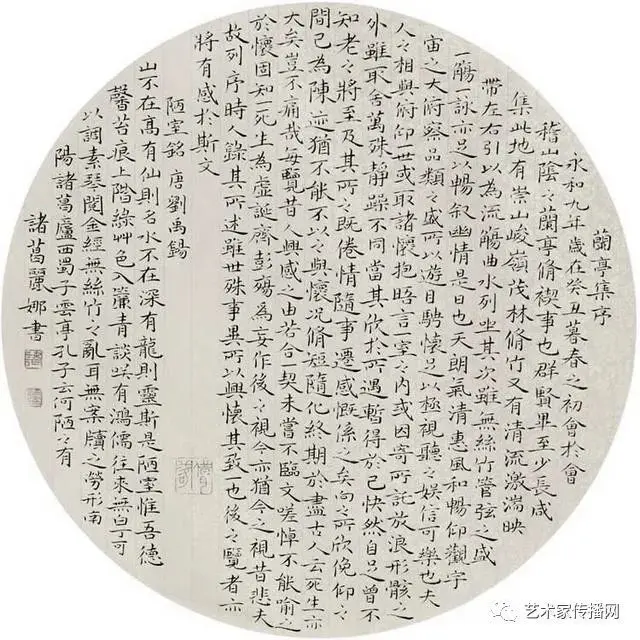 蘭亭集序
永和九年歲在癸丑暮春之初會於會
稽山陰之蘭亭脩禊事也群賢畢至少長咸
集此地有崇山峻嶺茂林脩竹又有清流激湍映
帶左右引以為流觴曲水列坐其次雖無絲竹管弦之盛
一觴一詠亦足以暢叙幽情是日也天朗氣清惠風和暢仰觀宇
宙之大俯察品類之盛所以遊目騁懷足以極視聽之娛信可樂也夫
人之相與俯仰一世或取諸懷抱晤言一室之內或因寄所託放浪形骸之
外雖取舍萬殊靜躁不同當其欣於所遇暫得於己快然自足曾不
知老之將至及其所之既倦情隨事遷感慨係之矣向之所欣俛仰之
間已為陳迹猶不能不以之興懷況脩短隨化終期於盡古人云死生亦
大矣豈不痛哉每覽昔人興感之由若合一契未嘗不臨文嗟悼不能喻之
於懷固知一死生為虛誕齊彭殤為妄作後之視今亦猶今之視昔悲夫
故列序時人錄其所述雖世殊事異所以興懷其致一也後之覽者亦
將有感於斯文
陋室銘 唐劉禹錫
山不在高有仙則名水不在深有龍則靈斯是陋室惟吾德
馨苔痕上階綠艸色入簾青談笑有鴻儒往來無白丁可
以調素琴閱金經無絲竹之亂耳無案牘之勞形南
陽諸葛廬西蜀子雲亭孔子云何陋之有
諸葛麗娜書
艺术家传播网